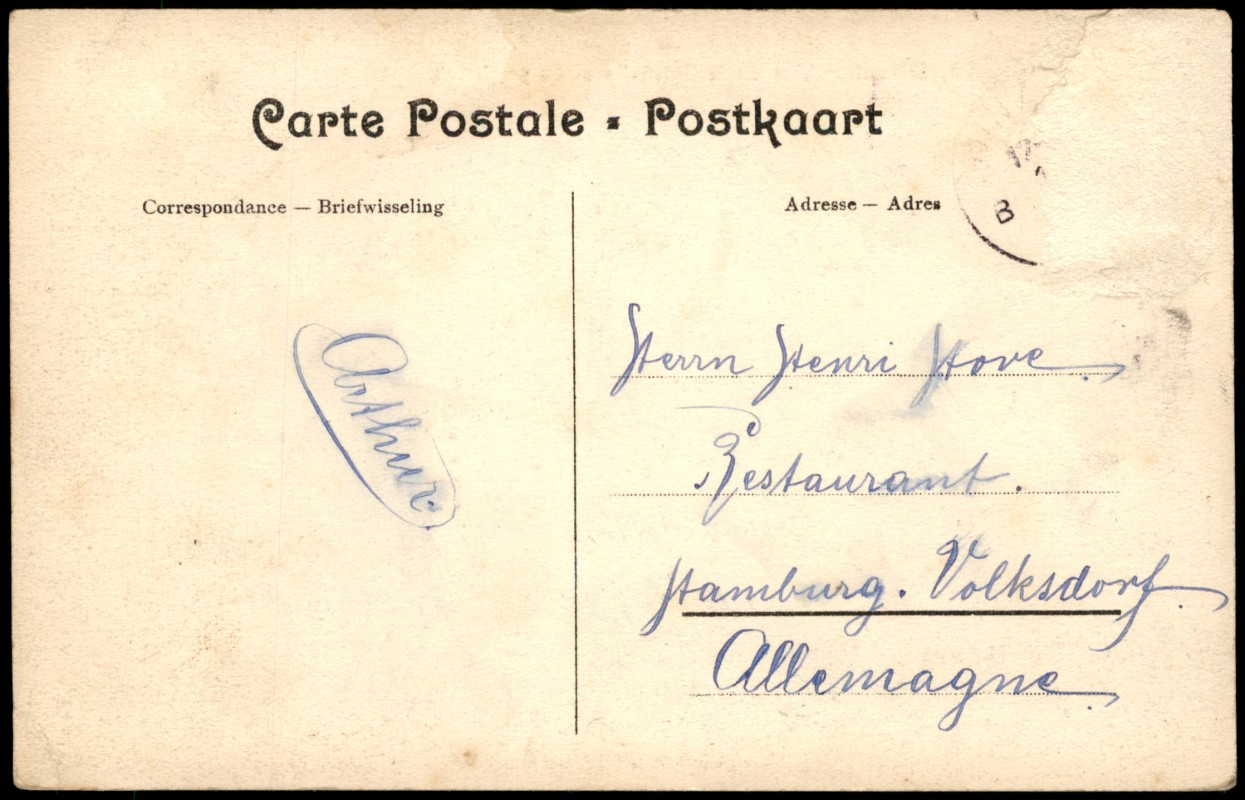 Carte Postale - Postkaart
Correspondance — Briefwisseling
Adresse — Adres
B
Arthur
Herrn Henri Hove
Restaurant.
Hamburg. Volksdorf.
Allemagne